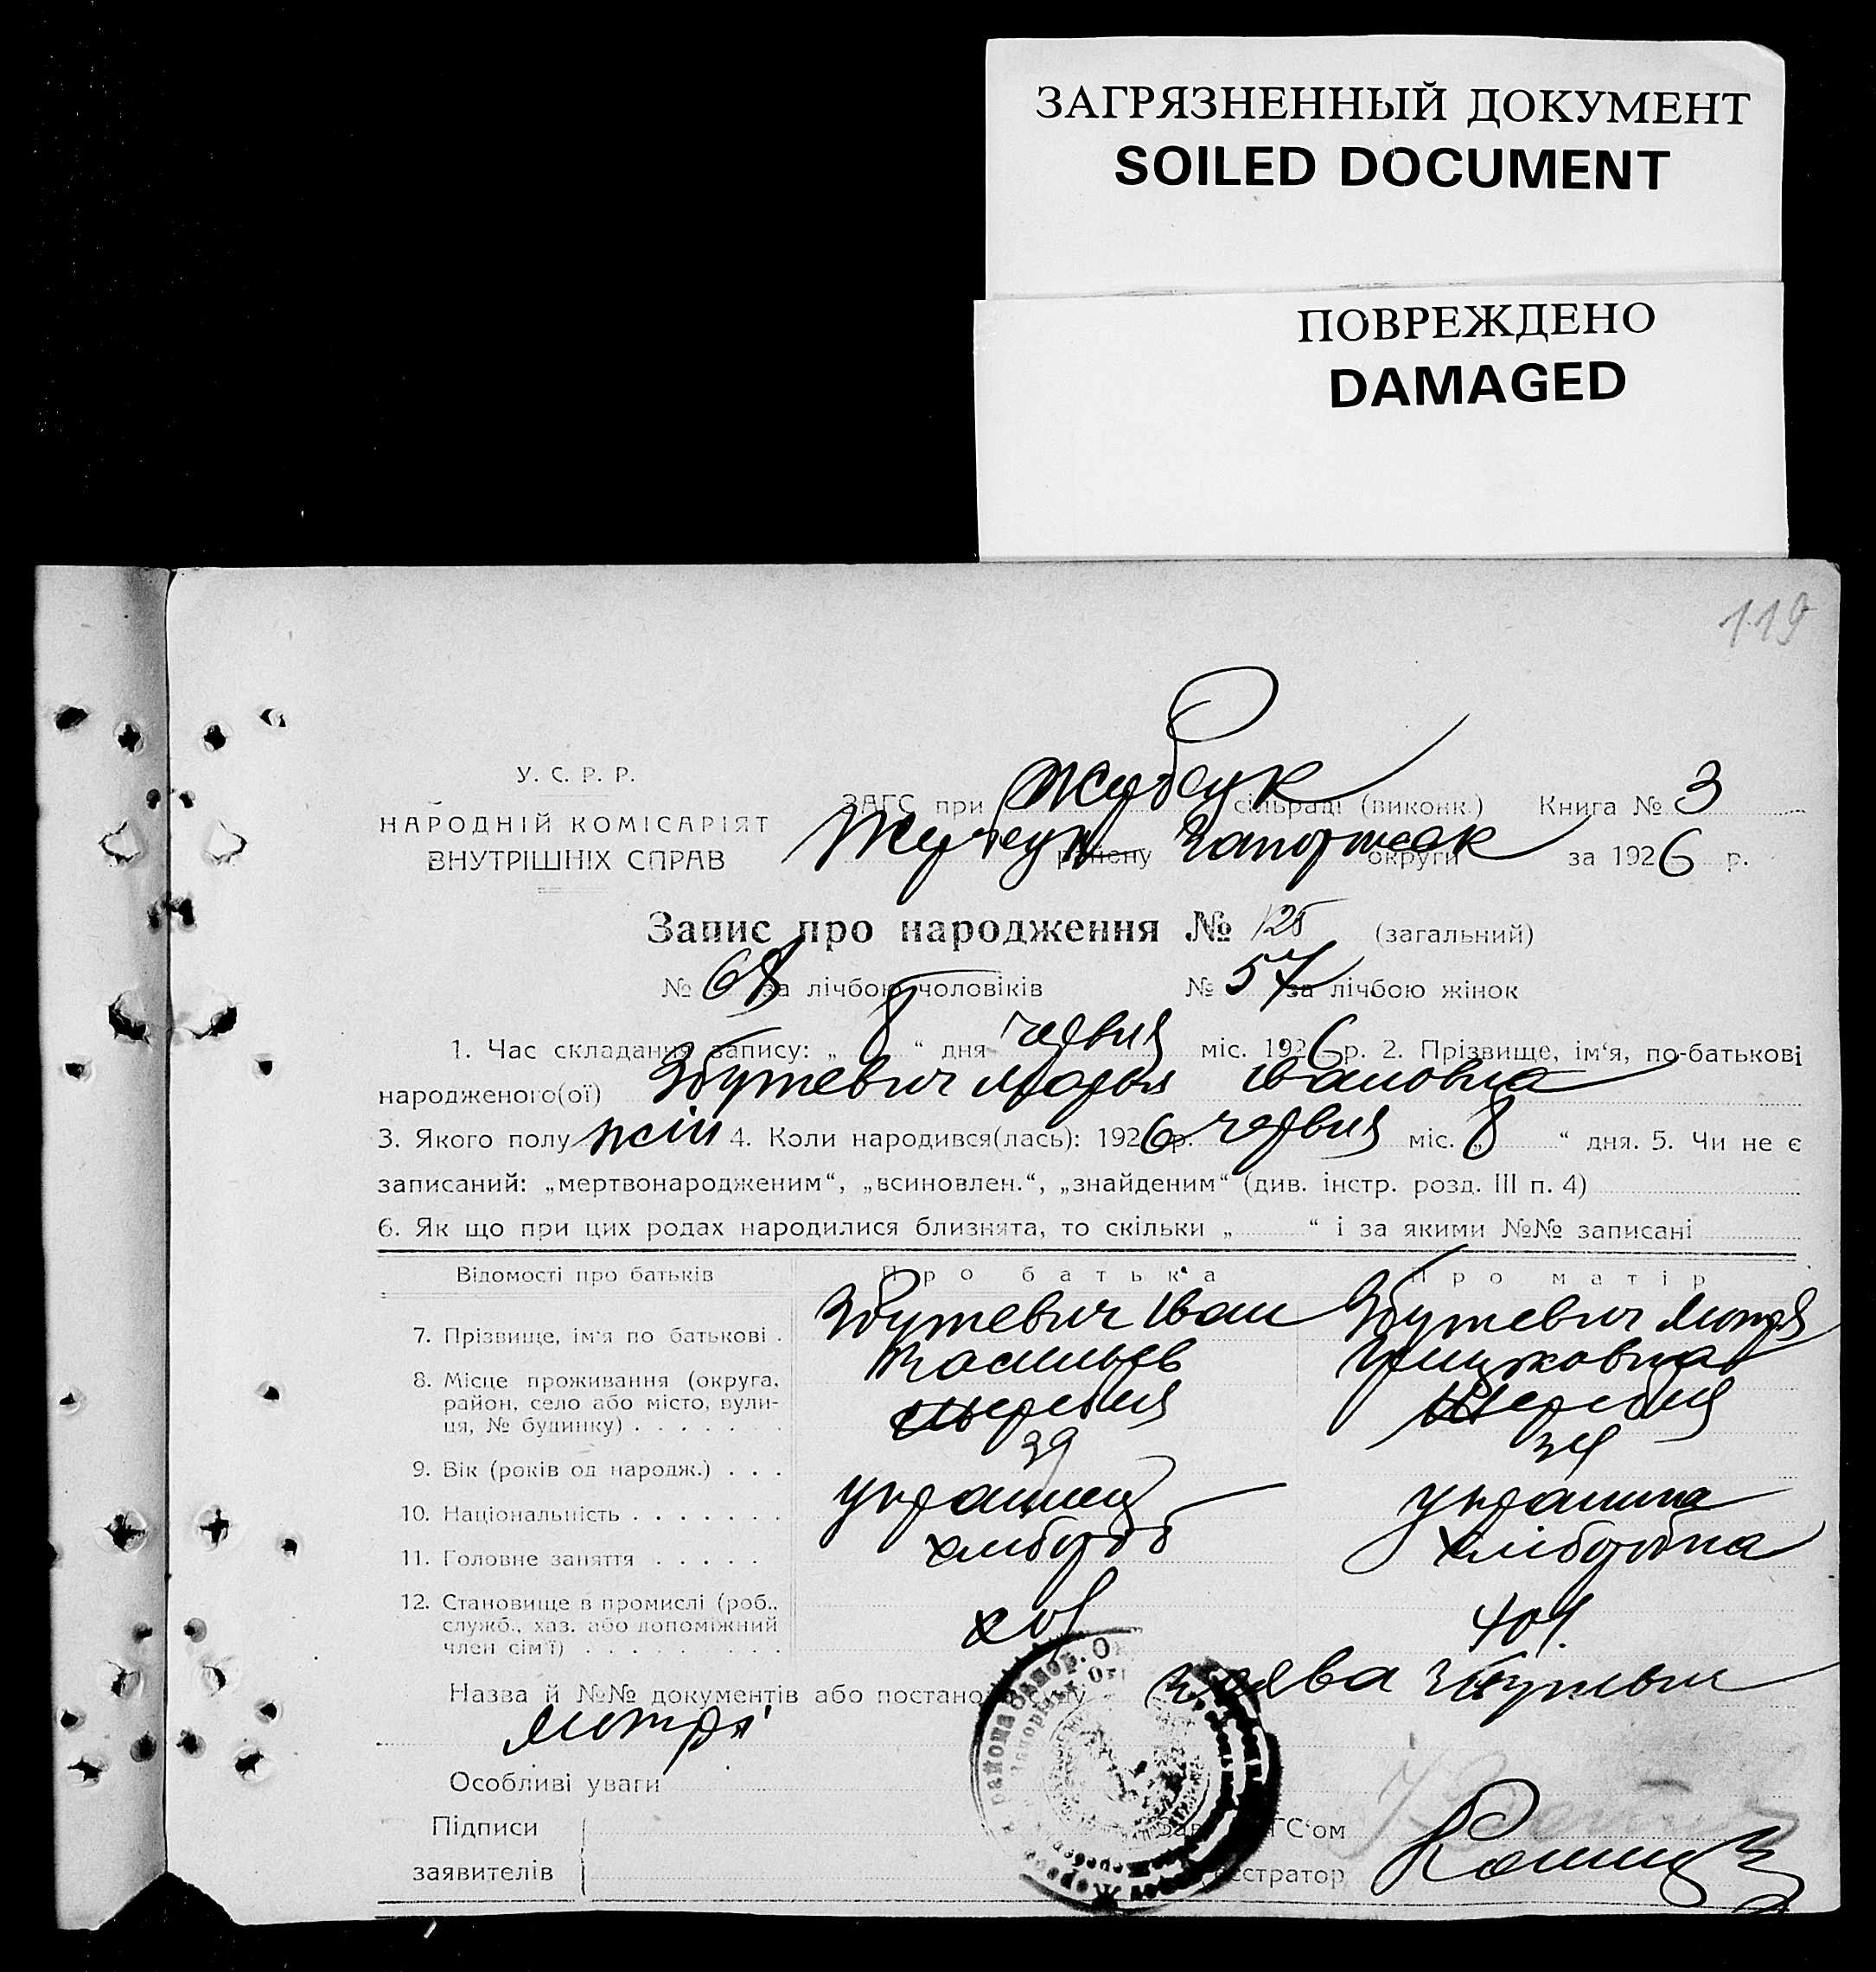 ЗАГРЯЗНЕННЫЙ ДОКУМЕНТ
SOILED DOCUMENT
ПОВРЕЖДЕНО
DAMAGED
119
У. С. Р. Р.
НАРОДНІЙ КОМІСАРІЯТ
ВНУТРІШНІХ СПРАВ
ЗАГС при сільраді (виконк.) Книга № 3
району Запоріжськ округи за 1926 р.
Запис про народження № 125 (загальний)
№ 68 за лічбою чоловіків № 57 за лічбою жінок
1. Час складання запису: „ 8 “ дня червня міс. 1926 р. 2. Прізвище, ім‘я, по-батькові
народженого(ої) Збутевич Марья Івановна
3. Якого полу жін 4. Коли народився(лась): 1926 р. червня міс. „ 8 “ дня. 5. Чи не є
записаний: „мертвонародженим“, „всиновлен.“, „знайденим“ (див. інстр. розд. III п. 4)
6. Як що при цих родах народилися близнята, то скільки „ “ і за якими №№ записані
Відомості про батьків Про батька Про матір
7. Прізвище, ім‘я по батькові . Збутевич Іван Збутевич Мотря
Васильев
8. Місце проживання (округа,
район, село або місто, вули-
ця, № будинку) . . . . . . .
9. Вік (років од народж.) . . . 39 34
10. Національність . . . . . . . українец українка
11. Головне заняття . . . . . хлібороб хліборобка
12. Становище в промислі (роб.,
служб., хаз. або допоміжний
член сім‘ї) . . . . . . . . . хоз
Назва й №№ документів або постанов суду заява Збутевич
Мотрі
Особливі уваги
Підписи
заявителів
Зав. ЗАГС‘ом
Реєстратор